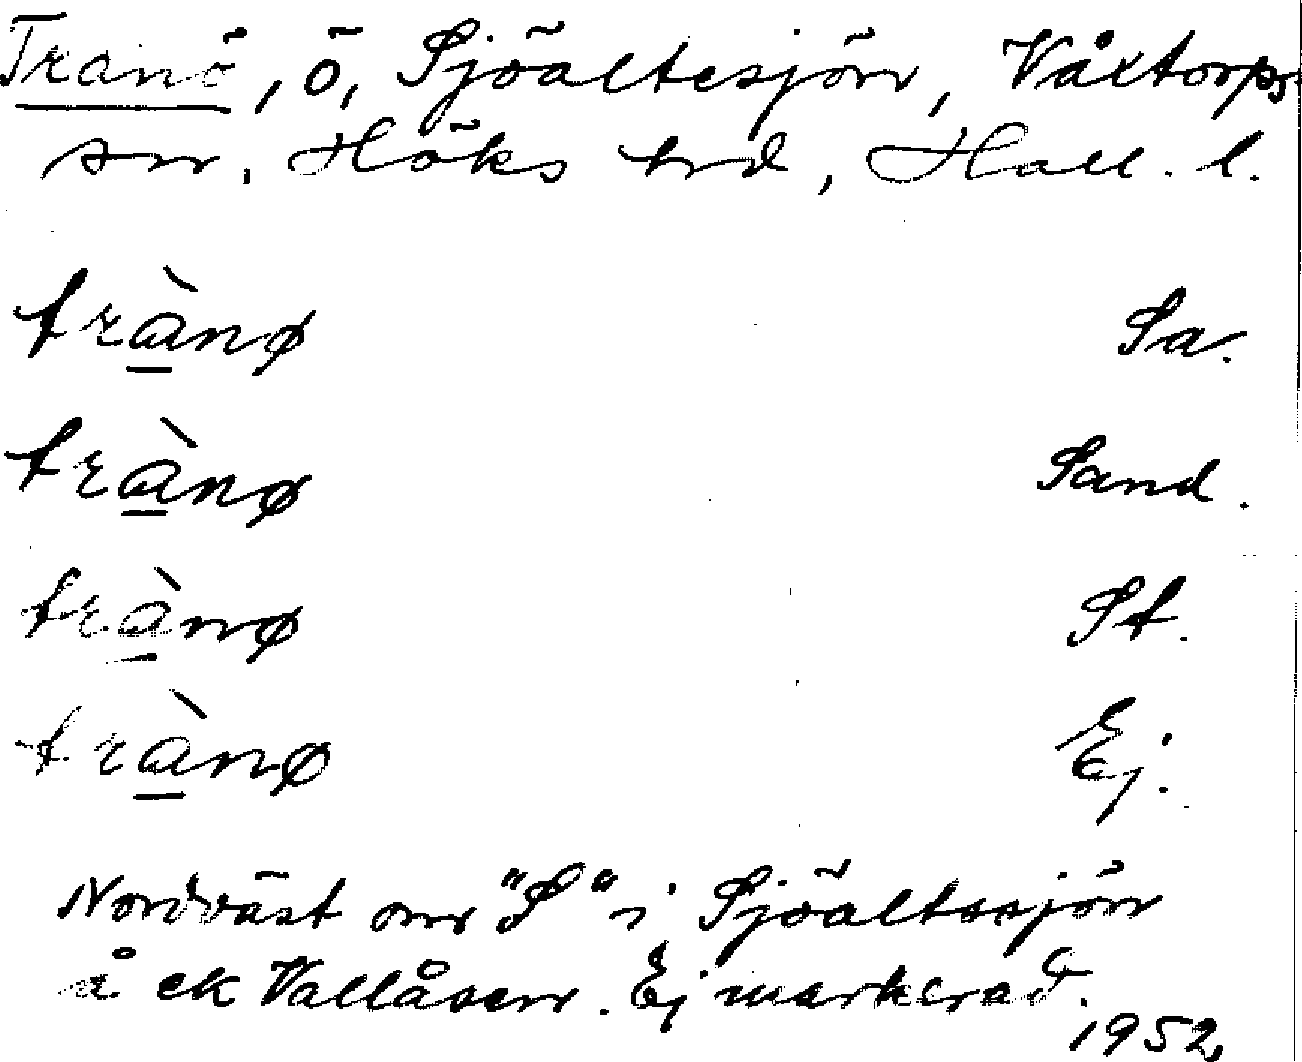 Tranö, ö, Sjöaltesjön, Våxtorps
sn. Höks hd, Hall. l.
trànø Sa.
trànø Sand.
trànø St.
trànø Ej.
Nordväst om "S" i Sjöaltesjön
å ek Vallåsen. Ej markerad.
1952